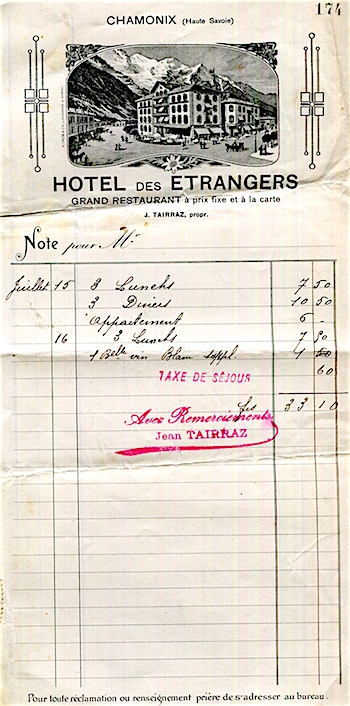 174
CHAMONIX (Haute Savoie)
HOTEL DES ETRANGERS
GRAND RESTAURANT à prix fixe et à la carte
J. TAIRRAZ, propr.
Note pour Mr
Juillet 15 3 Lunchs 7 50
3 Diners 10 50
Appartement 6 -
16 3 Lunchs 7 50
1 Blle vin Blanc suppl. 1
TAXE DE SÉJOUR 60
33 10
Avec Remerciements
Jean TAIRRAZ
Pour toute réclamation ou renseignement prière de s'adresser au bureau.